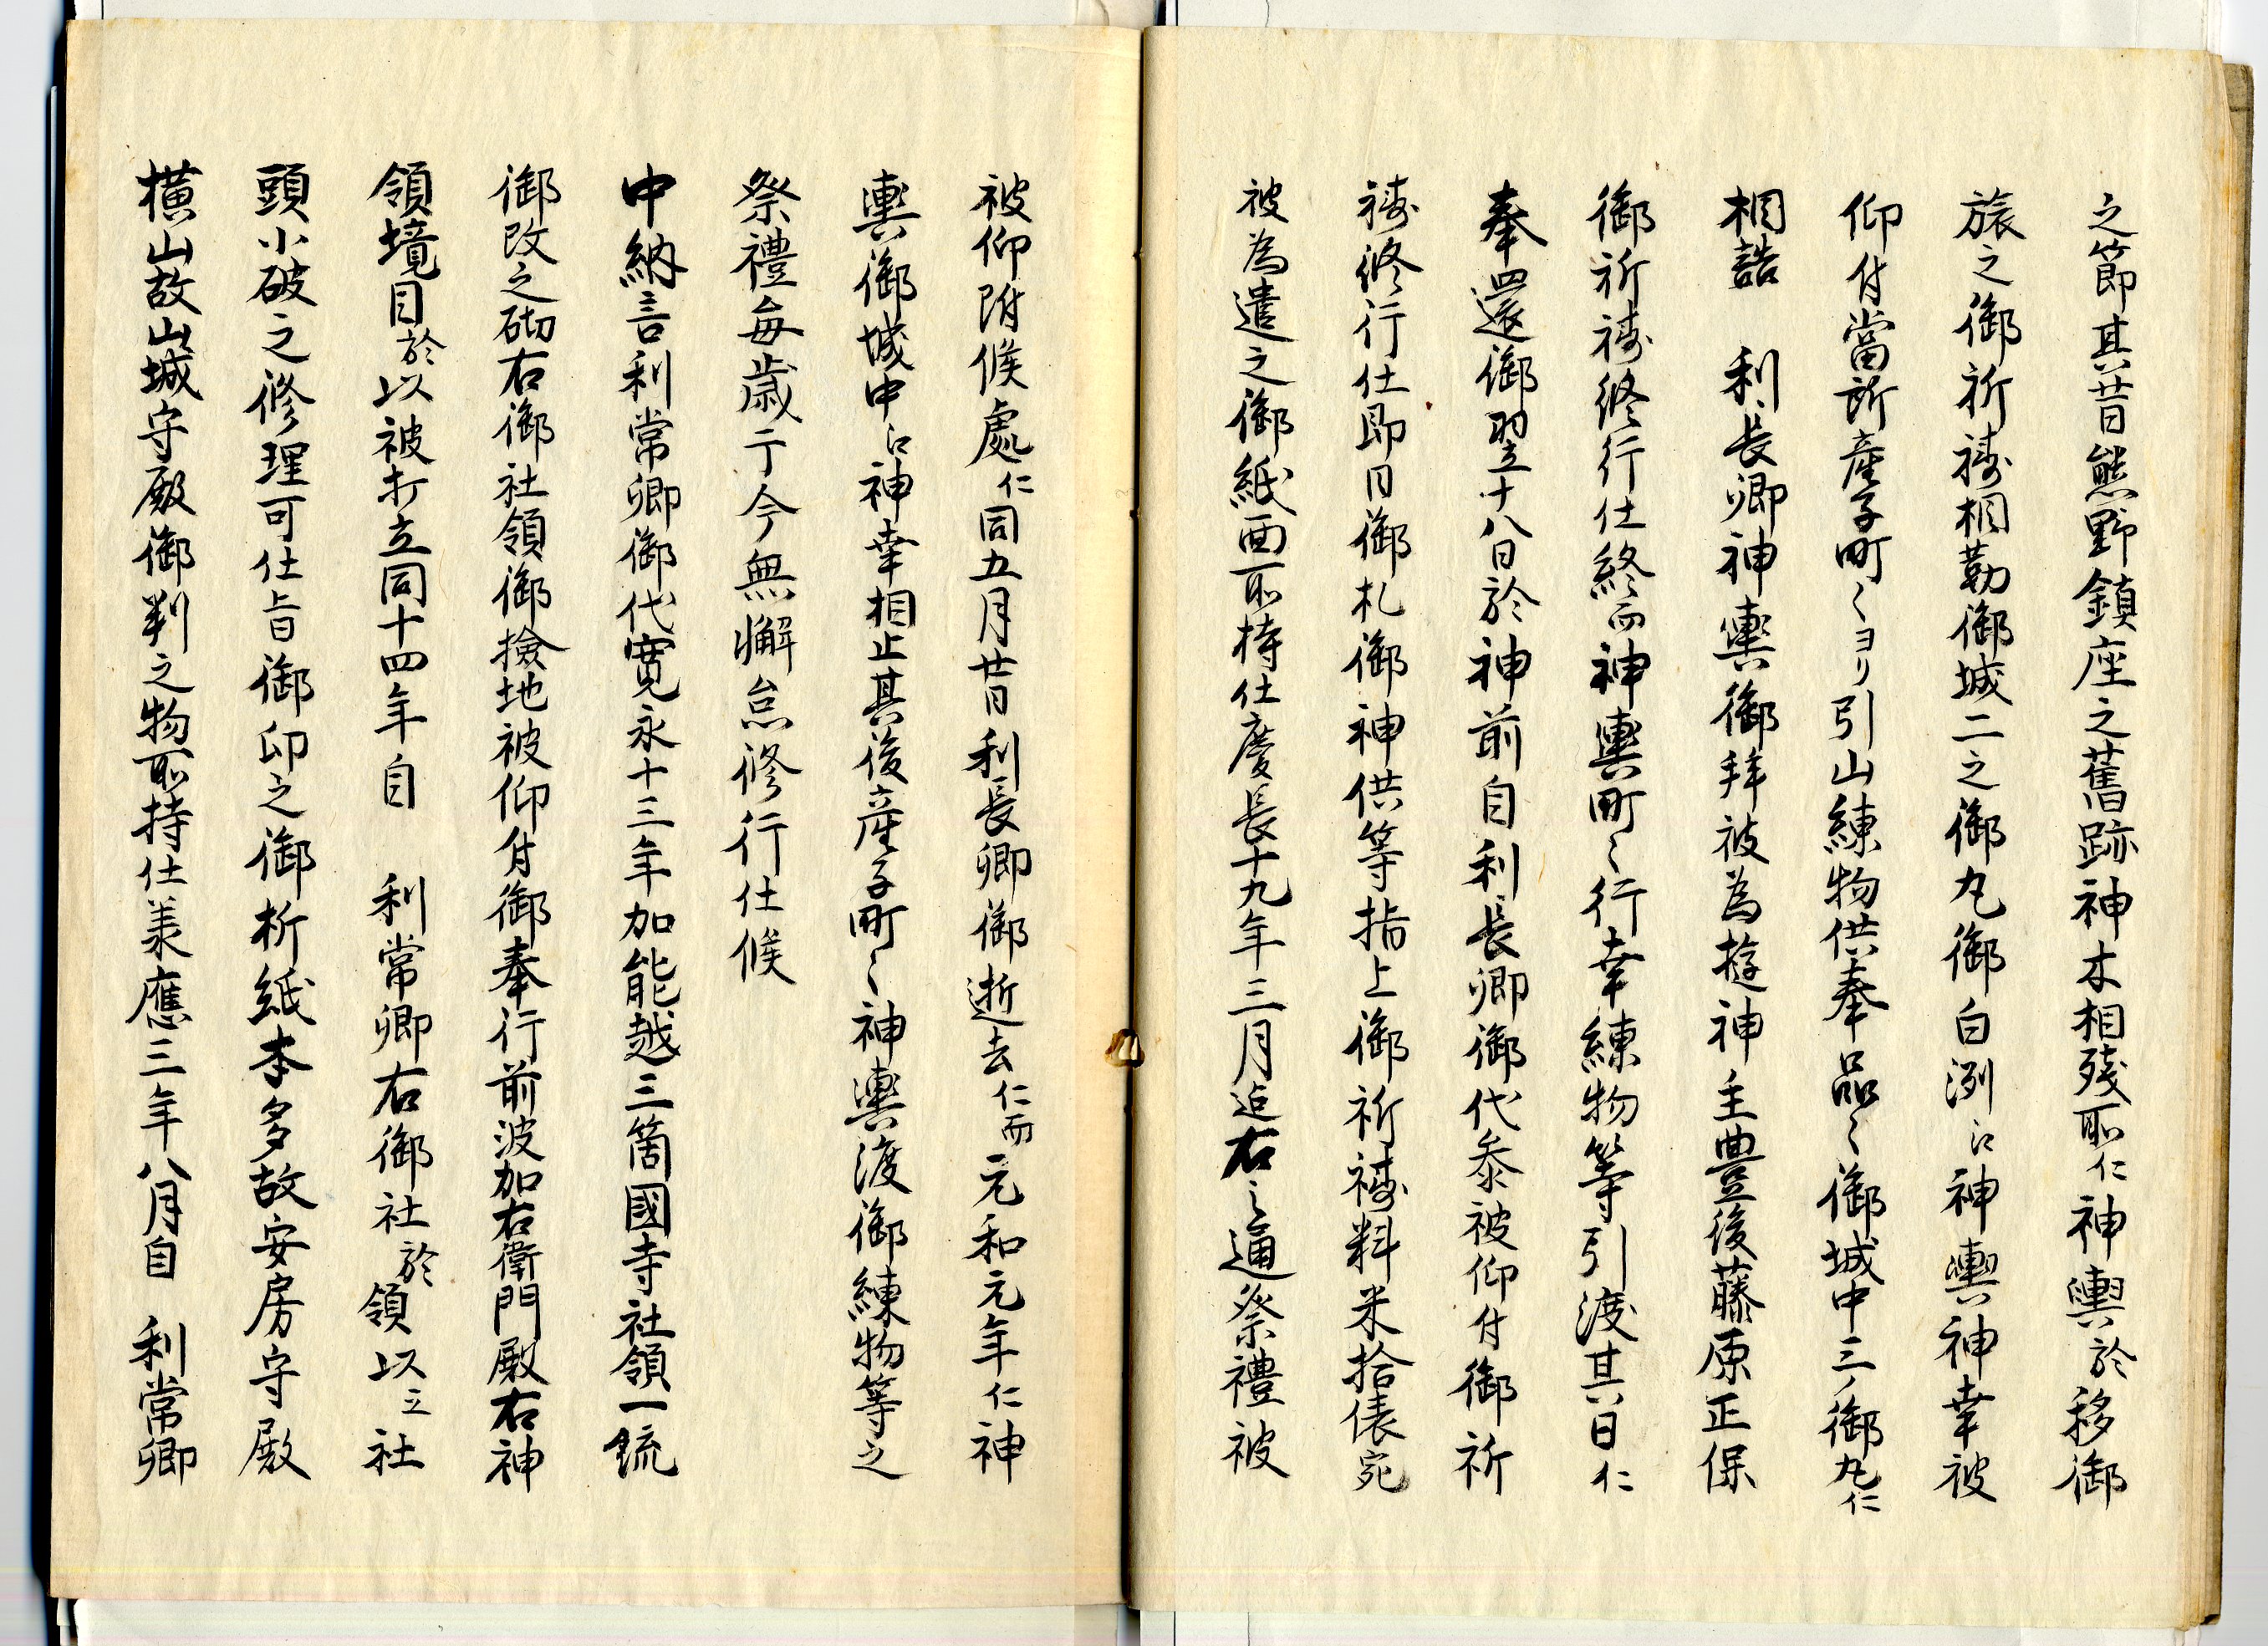 之節其昔熊野鎮座之舊跡神木相殘耶仁神輿於移御
旅之御祈禱相勤御城二之御丸御白洲江神輿神幸被
仰付當所産子町〻ヨリ引山練物供奉品〻御城中三ノ御丸仁
相詰　利長卿神輿御拜被為遊神主豊後藤原正保
御祈禱終行仕終而神輿町〻行幸練物等引渡其日仁
奉還御翌十八日於神前自利長卿御代参被仰付御祈
禱終行仕即日御札御神供等指上御祈禱料米拾俵宛
被為遣之御紙面耶持仕慶長十九年三月迄右之通祭禮被
被仰附候處仁同五月廿日利長卿御逝去仁而元和元年仁神
輿御城中江神幸相止其後産子町〻神輿渡御練物等之
祭禮毎歳于今無懈怠修行仕候
中納言利常卿御代寛永十三年加能越三箇國寺社領一統
御改之砌右御社領御撿地被仰付御奉行前波加右衛門殿右神
領境目於以被打立同十四年自　利常卿右御社於領以立社
頭小破之修理可仕旨御印之御折紙本多故安房守殿
横山故山城守殿御判之物耶持仕羕應三年八月自　利常卿